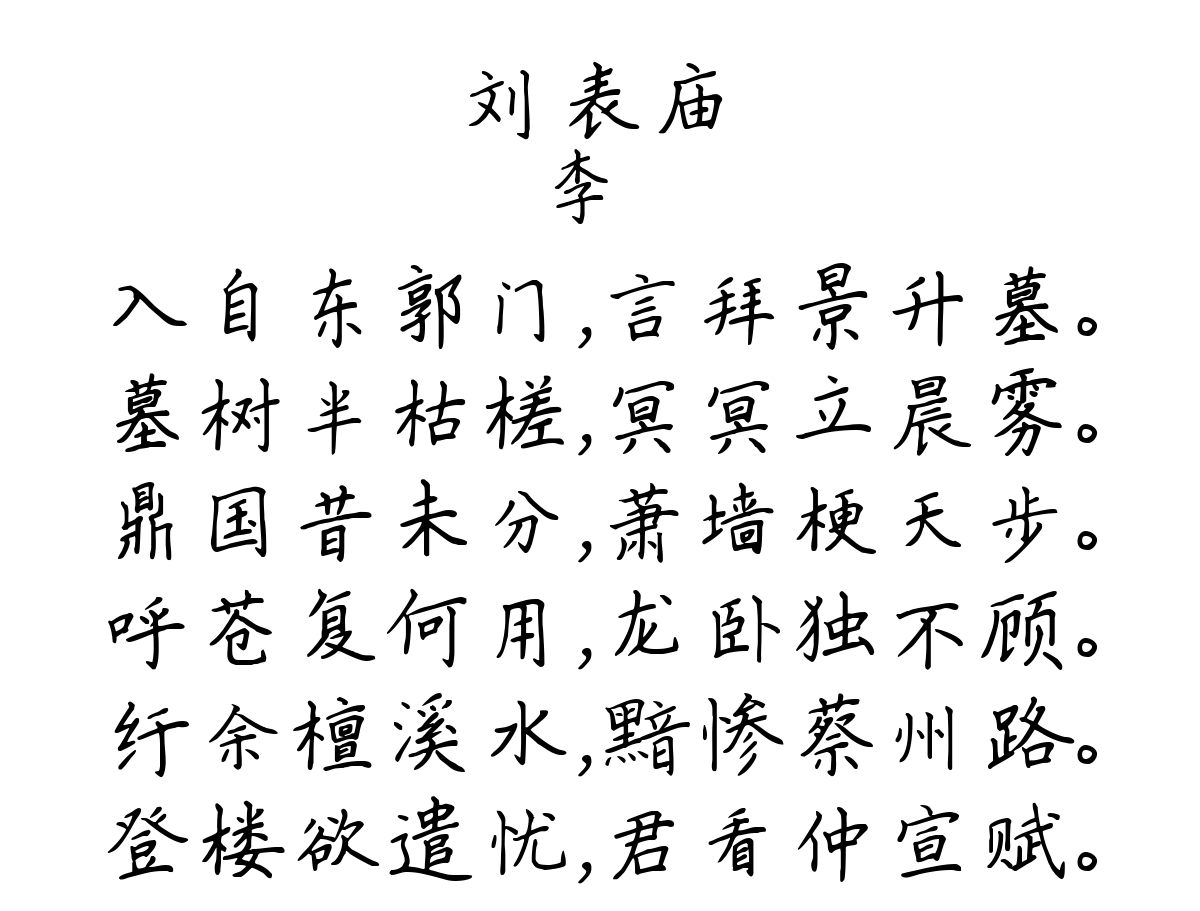 刘表庙
李
入自东郭门,言拜景升墓。
墓树半枯槎,冥冥立晨雾。
鼎国昔未分,萧墙梗天步。
呼苍复何用,龙卧独不顾。
纡余檀溪水,黯惨蔡州路。
登楼欲遣忧,君看仲宣赋。